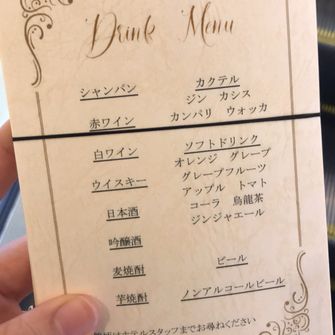 Drink Menu
シャンパン
赤ワイン
白ワイン
ウイスキー
日本酒
吟醸酒
麦焼酎
芋焼酎
カクテル
ジン　カシス
カンパリ　ウォッカ
ソフトドリンク
オレンジ　グレープ
グレープフルーツ
アップル　トマト
コーラ　烏龍茶
ジンジャエール
ビール
ノンアルコールビール
はホテルスタッフまでお尋ねください